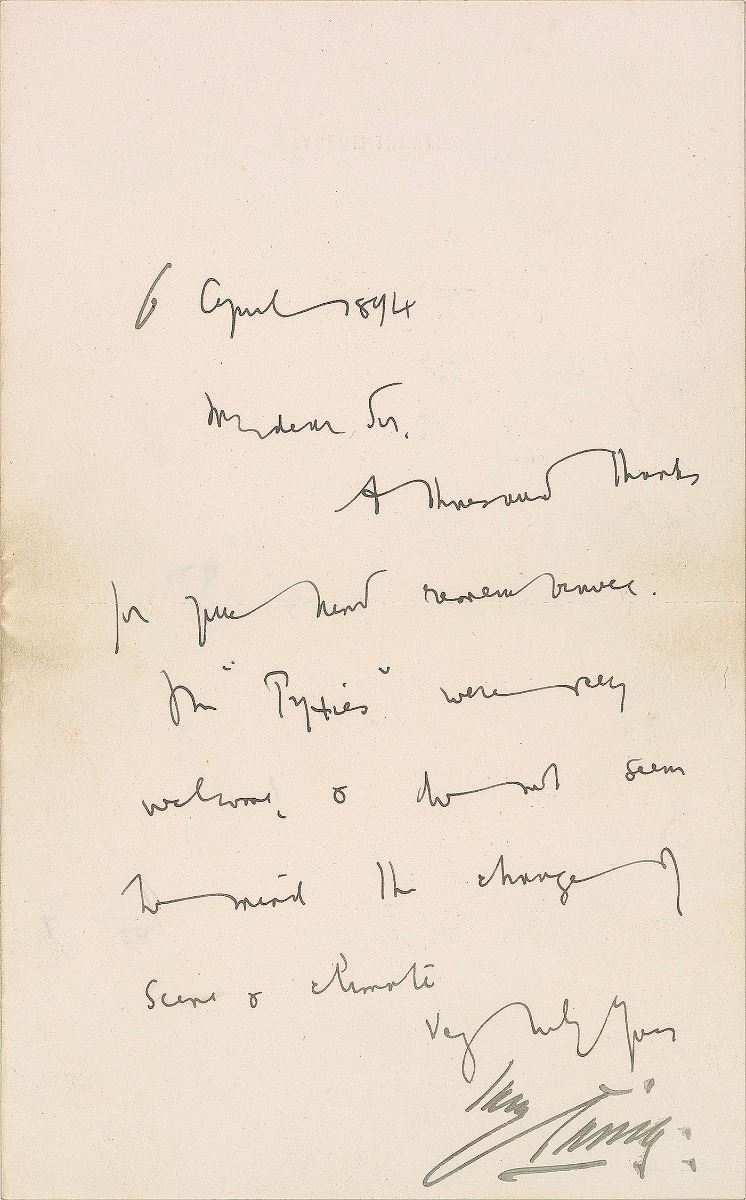 6 April 1894
My dear Sir.
A thousand thanks
for your kind remembrance.
The "Pyxies" were very
welcome, & do not seem
to mind the change of
scene & climate
Very truly yours
Henry Irving